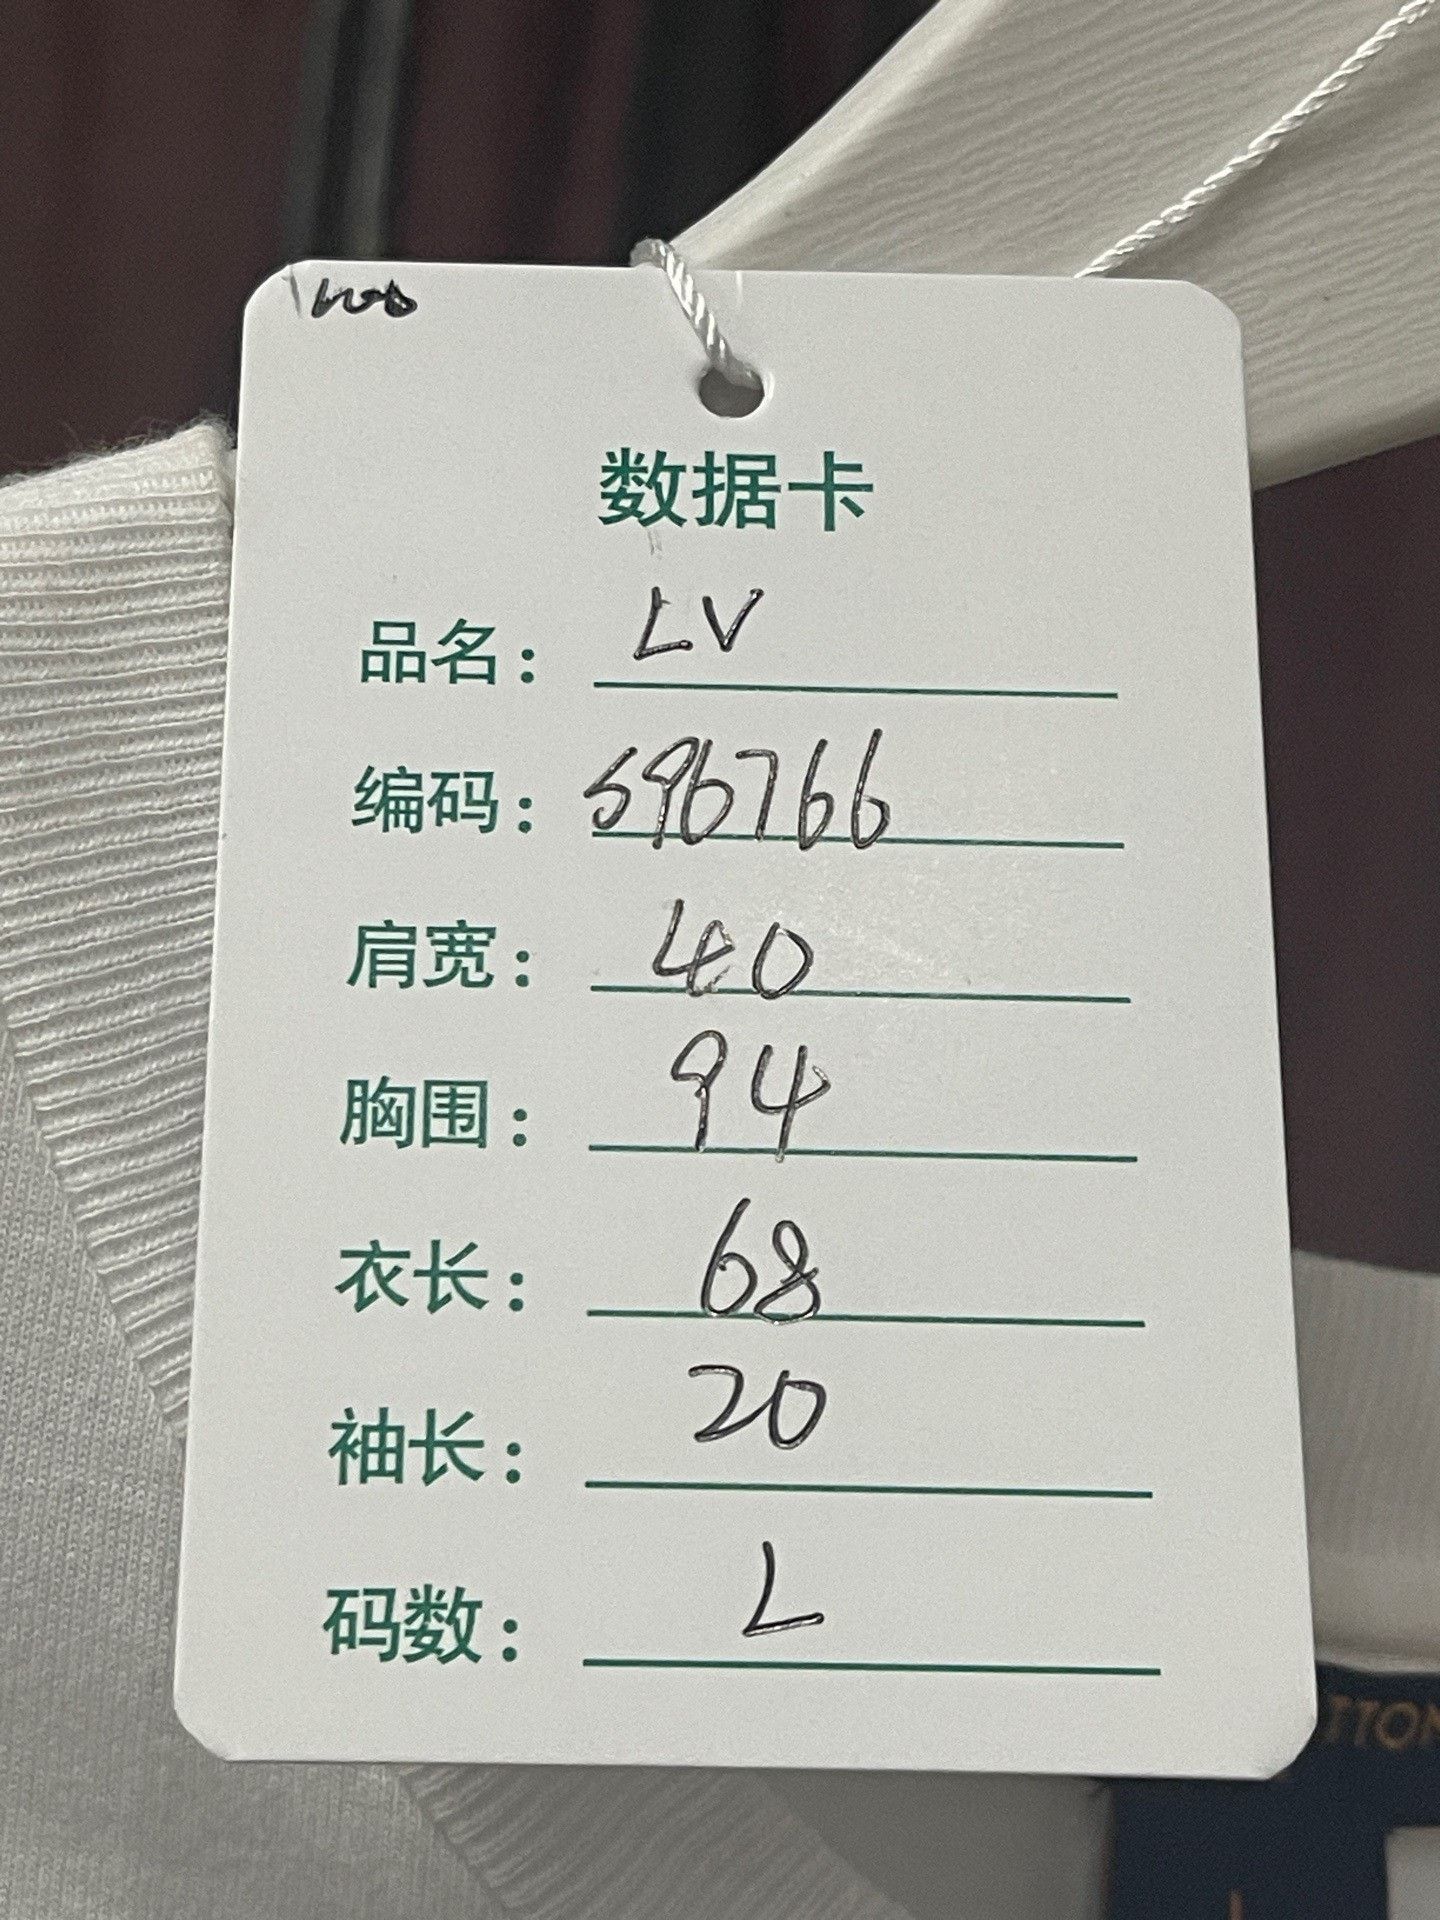 数据卡
品名: LV
编码: 596766
肩宽: 40
胸围: 94
衣长: 68
袖长: 20
码数: L